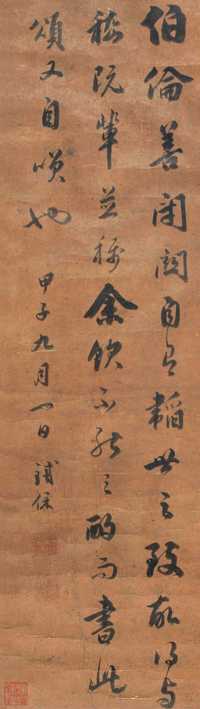 伯倫善閉關自有韜世之致故得与
嵇阮輩並稱余飲不能三酌而書此
頌又自嘆也
甲子九月一日鐵保